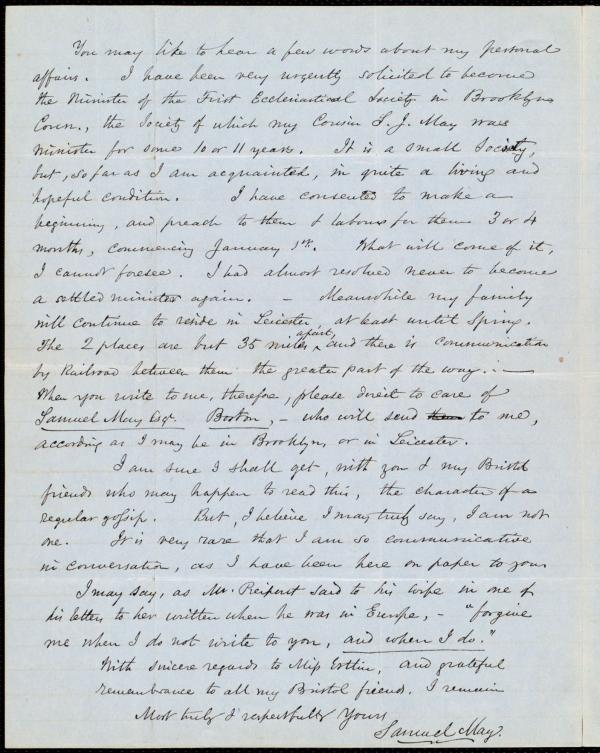 You may like to hear a few words about my personal
affairs. I have been very urgently solicited to become
the Minister of the First Ecclesiastical Society in Brooklyn
Conn., the Society of which my Cousin S. J. May was
Minister for some 10 or 11 years. It is a small Society,
but, so far as I am acquainted, in quite a living and
hopeful condition. I have consented to make a
beginning, and preach to them & labour for them 3 or 4
months, commencing January 1st. What will come of it,
I cannot foresee. I had almost resolved never to become
a settled minister again. — Meanwhile my family
will continue to reside in Leicester, at least until Spring.
The 2 places are but 35 miles apart, and there is communication
by Railroad between them the greater part of the way. —
When you write to me, therefore, please direct to care of
Samuel May Esqr. Boston, – who will send them to me,
according as I may be in Brooklyn, or in Leicester.
I am sure I shall get, with you & my Bristol
friends who may happen to read this, the character of a
regular gossip. But, I believe I may truly say, I am not
one. It is very rare that I am so communicative
in conversation, as I have been here on paper to you
I may say, as Mr. said to his wife in one of
his letters to her written when he was in Europe, – "forgive
me when I do not write to you, and when I do."
With sincere regards to Miss Estlin, and grateful
remembrance to all my Bristol friends. I remain
Most truly & respectfully Yours
Samuel May.